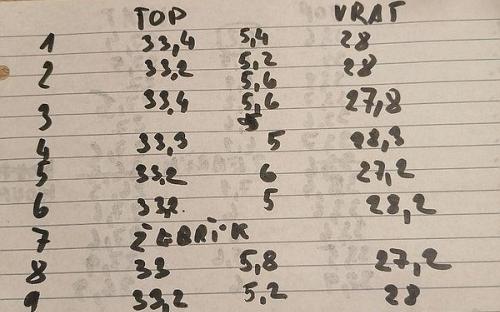 TOP VRAT
1 33,4 5,4 28
2 33,2 5,2 28
5,6
3 33,4 5,6 27,8
4 33,3 5 28,3
5 33,2 6 27,2
6 33,2 5 28,2
7 ŽEBŘÍK
8 33 5,8 27,2
9 33,2 5,2 28